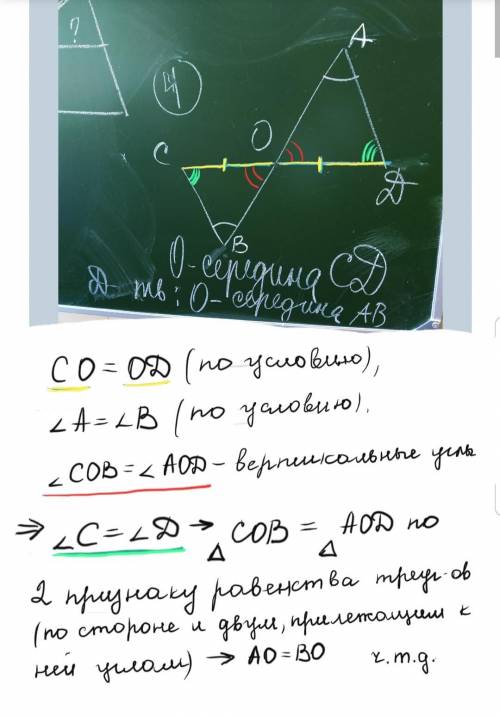 ?
4
A
O
C
D
B
O - середина CD
Д-ть: O - середина AB
CO = OD (по условию),
∠A = ∠B (по условию).
∠COB = ∠AOD - вертикальные углы
⇒ ∠C = ∠D → △COB = △AOD по
2 признаку равенства треуг-ов
(по стороне и двум, прилежащим к
ней углам) → AO = BO ч.т.д.